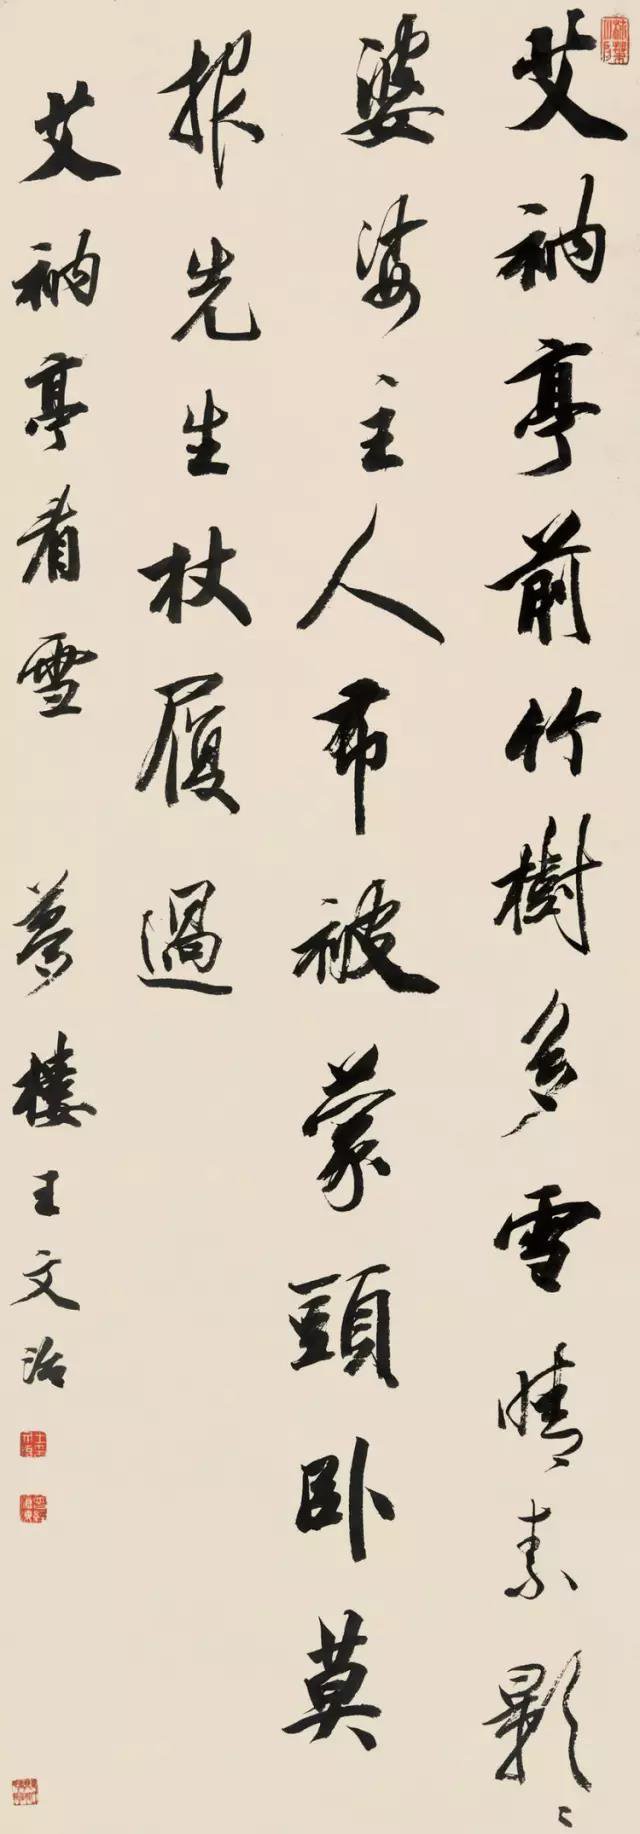 艾衲亭前竹樹多雪晴素影〻
婆娑主人布被蒙頭卧莫
报先生杖履過
艾衲亭看雪 夢樓王文治